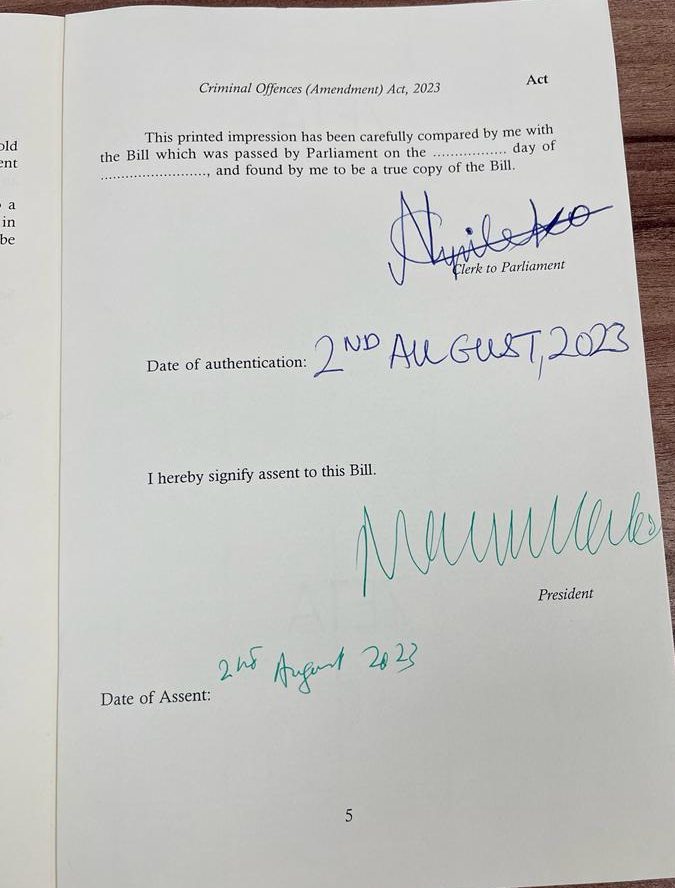 old
ent
a
in
be
Criminal Offences (Amendment) Act, 2023
Act
This printed impression has been carefully compared by me with
the Bill which was passed by Parliament on the ................. day of
........................., and found by me to be a true copy of the Bill.
Clerk to Parliament
Date of authentication: 2ND AUGUST, 2023
I hereby signify assent to this Bill.
President
2nd August 2023
Date of Assent:
5